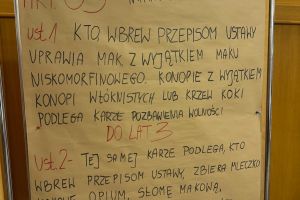 ust.1 KTO WBREW PRZEPISOM USTAWY
UPRAWIA MAK Z WYJĄTKIEM MAKU
NISKOMORFINOWEGO, KONOPIE Z WYJĄTKIEM
KONOPI WŁÓKNISTYCH LUB KRZEW KOKI
PODLEGA KARZE POZBAWIENIA WOLNOŚCI
DO LAT 3
ust.2- TEJ SAMEJ KARZE PODLEGA, KTO
WBREW PRZEPISOM USTAWY, ZBIERA MLECZKO
OPIUM, SŁOMĘ MAKOWĄ,